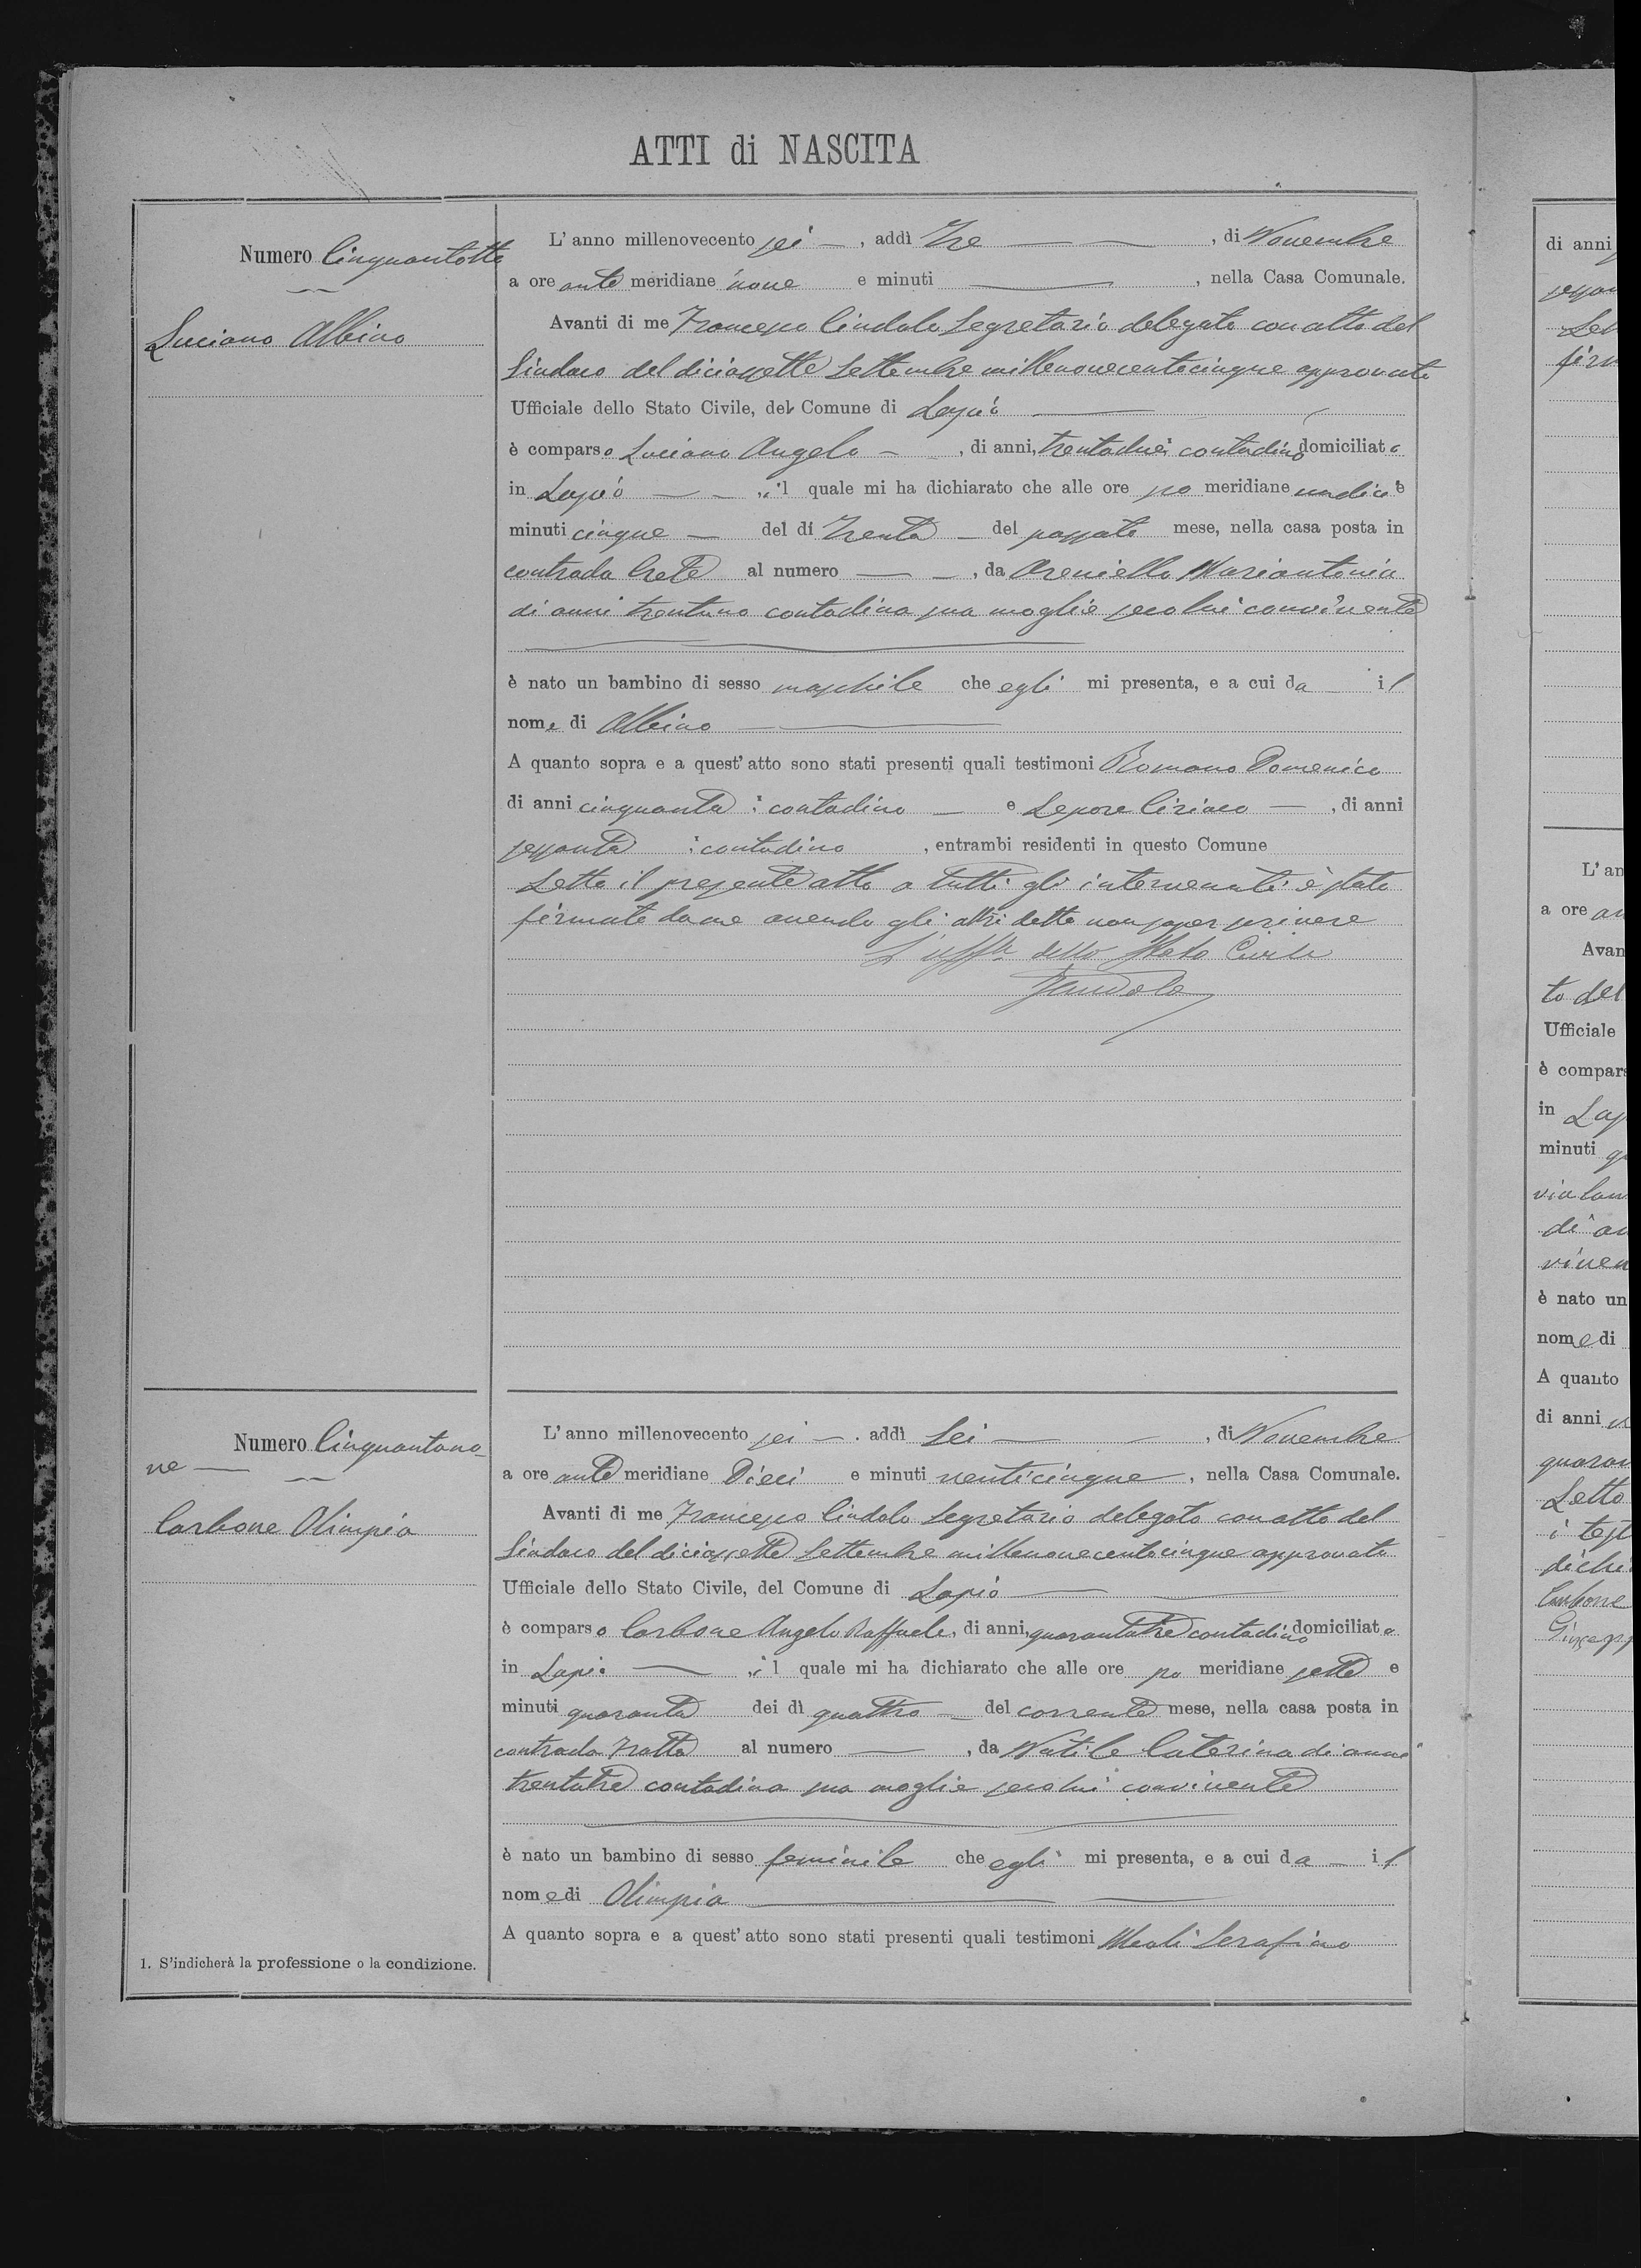 ATTI di NASCITA
Numero Cinquantotto
Luciano Albino
L' anno millenovecento sei , addì Tre , di Novembre
a ore ante meridiane nove e minuti , nella Casa Comunale.
Avanti di me Francesco Cindolo Segretario delegato con atto del
Sindaco del diciassette Settembre millenovecentocinque approvato
Ufficiale dello Stato Civile, del Comune di Lapio
è comparso Luciano Angelo , di anni, trentadue contadino domiciliato
in Lapio il quale mi ha dichiarato che alle ore po meridiane undici e
minuti cinque del dì Trenta del passato mese, nella casa posta in
contrada Crete al numero , da Oreniello Mariantonia
di anni trentuno contadina sua moglie seco lui convivente
è nato un bambino di sesso maschile che egli mi presenta, e a cui da il
nome di Albino
A quanto sopra e a quest' atto sono stati presenti quali testimoni Romano Domenico
di anni cinquanta contadino e Lepore Ciriaco , di anni
sessanta contadino , entrambi residenti in questo Comune
Letto il presente atto a tutti gli intervenuti è stato
firmato da me avendo gli altri detto non saper scrivere
L'uffle dello Stato Civile
FCindolo
Numero Cinquantano-
ve
Carbone Olimpia
L' anno millenovecento sei . addì Sei , di Novembre
a ore ante meridiane Dieci e minuti venticinque , nella Casa Comunale.
Avanti di me Francesco Cindolo Segretario delegato con atto del
Sindaco del diciassette Settembre millenovecentocinque approvato
Ufficiale dello Stato Civile, del Comune di Lapio
è comparso Carbone Angelo Raffaele, di anni, quarantatre contadino domiciliato
in Lapio il quale mi ha dichiarato che alle ore po meridiane sette e
minuti quaranta dei dì quattro del corrente mese, nella casa posta in
contrada Fratte al numero , da Nutile Caterina di anni
trentatre contadina sua moglie seco lui convivente
è nato un bambino di sesso feminile che egli mi presenta, e a cui da il
nome di Olimpia
A quanto sopra e a quest' atto sono stati presenti quali testimoni Meoli Serafino
1. S'indicherà la professione o la condizione.
di anni
L' an
a ore an
Avan
to del
Ufficiale
è compars
in Lap
minuti
di an
viven
è nato un
nome di
A quanto
di anni
quaran
Letto
i test
dichi
Carbone
Giusepp